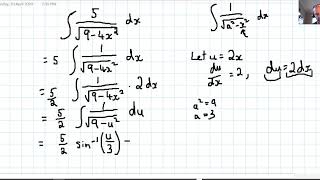 ∫ 5/√(9-4x²) dx
= 5 ∫ 1/√(9-4x²) dx
= 5/2 ∫ 1/√(9-4x²) · 2dx
= 5/2 ∫ 1/√(9-u²) du
= 5/2 sin⁻¹(u/3) -
∫ 1/√(a²-x²) dx
9
Let u = 2x
du/dx = 2, du = 2dx
a² = 9
a = 3